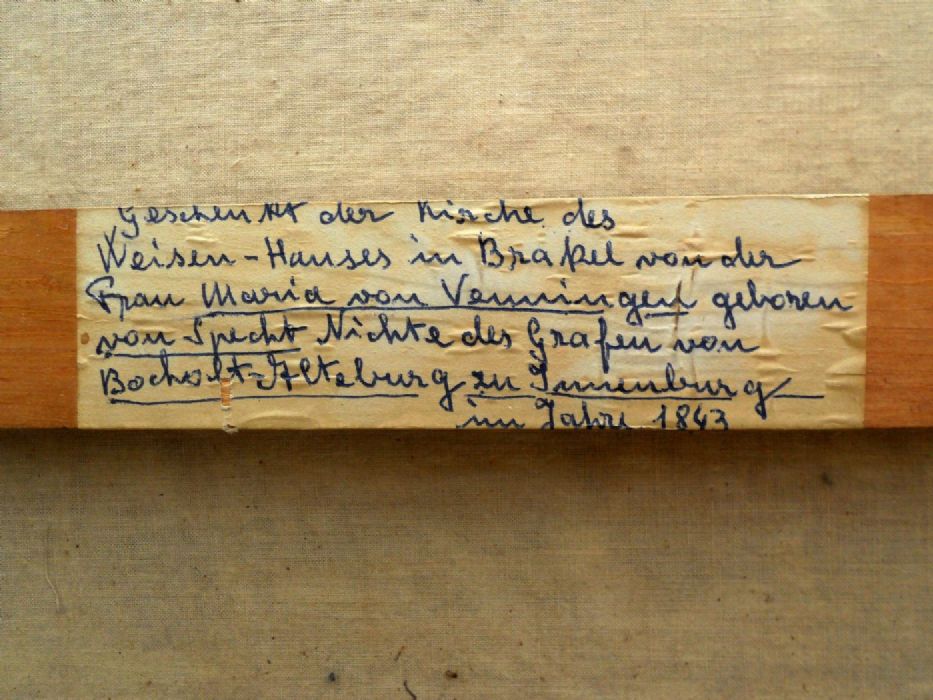 Geschenkt der Kirche des
Weisen-Hauses in Brakel von der
Frau Maria von Venningen geboren
von Specht Nichte des Grafen von
Bocholt-Alteburg zu Innenburg
im Jahre 1843